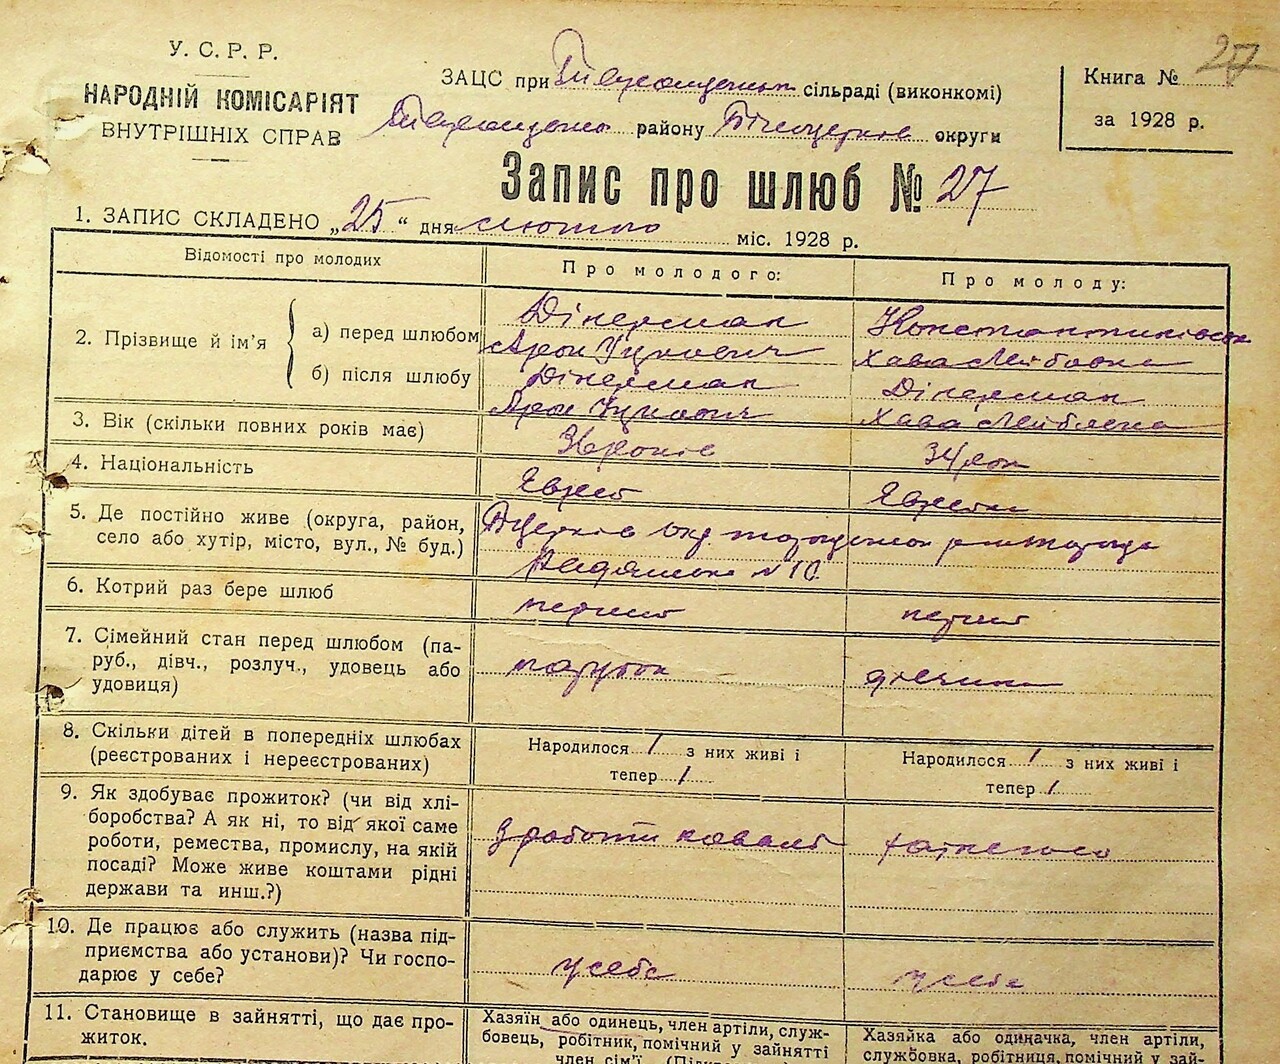 27
У. С. Р. Р.
НАРОДНІЙ КОМІСАРІЯТ
ВНУТРІШНІХ СПРАВ
ЗАЦС при сільраді (виконкомі)
району Білоцерків округи
Книга №
за 1928 р.
Запис про шлюб № 27
1. ЗАПИС СКЛАДЕНО „25“ дня лютого міс. 1928 р.
Відомості про молодих
Про молодого:
Про молоду:
2. Прізвище й ім'я
а) перед шлюбом
Дінерман
Константинівськ
Арон
Хава Лейбовна
б) після шлюбу
Дінерман
Дінерман
Арон
Хава
3. Вік (скільки повних років має)
36 років
34 рок
4. Національність
Єврей
Єврейка
5. Де постійно живе (округа, район,
село або хутір, місто, вул., № буд.)
Бцерків окр.
Радянська № 10
6. Котрий раз бере шлюб
перший
перший
7. Сімейний стан перед шлюбом (па-
руб., дівч., розлуч., удовець або
удовиця)
парубок
дівчина
8. Скільки дітей в попередніх шлюбах
(реєстрованих і нереєстрованих)
Народилося / з них живі і
тепер /
Народилося / з них живі і
тепер /
9. Як здобуває прожиток? (чи від хлі-
боробства? А як ні, то від якої саме
роботи, ремества, промислу, на якій
посаді? Може живе коштами рідні
держави та инш.?)
з роботи коваля
хатнього
10. Де працює або служить (назва під-
приємства або установи)? Чи госпо-
дарює у себе?
у себе
у себе
11. Становище в зайнятті, що дає про-
житок.
Хазяїн або одинець, член артіли, служ-
бовець, робітник, помічний у зайнятті
член сім'ї.
Хазяйка або одиначка, член артіли,
службовка, робітниця, помічний у зай-